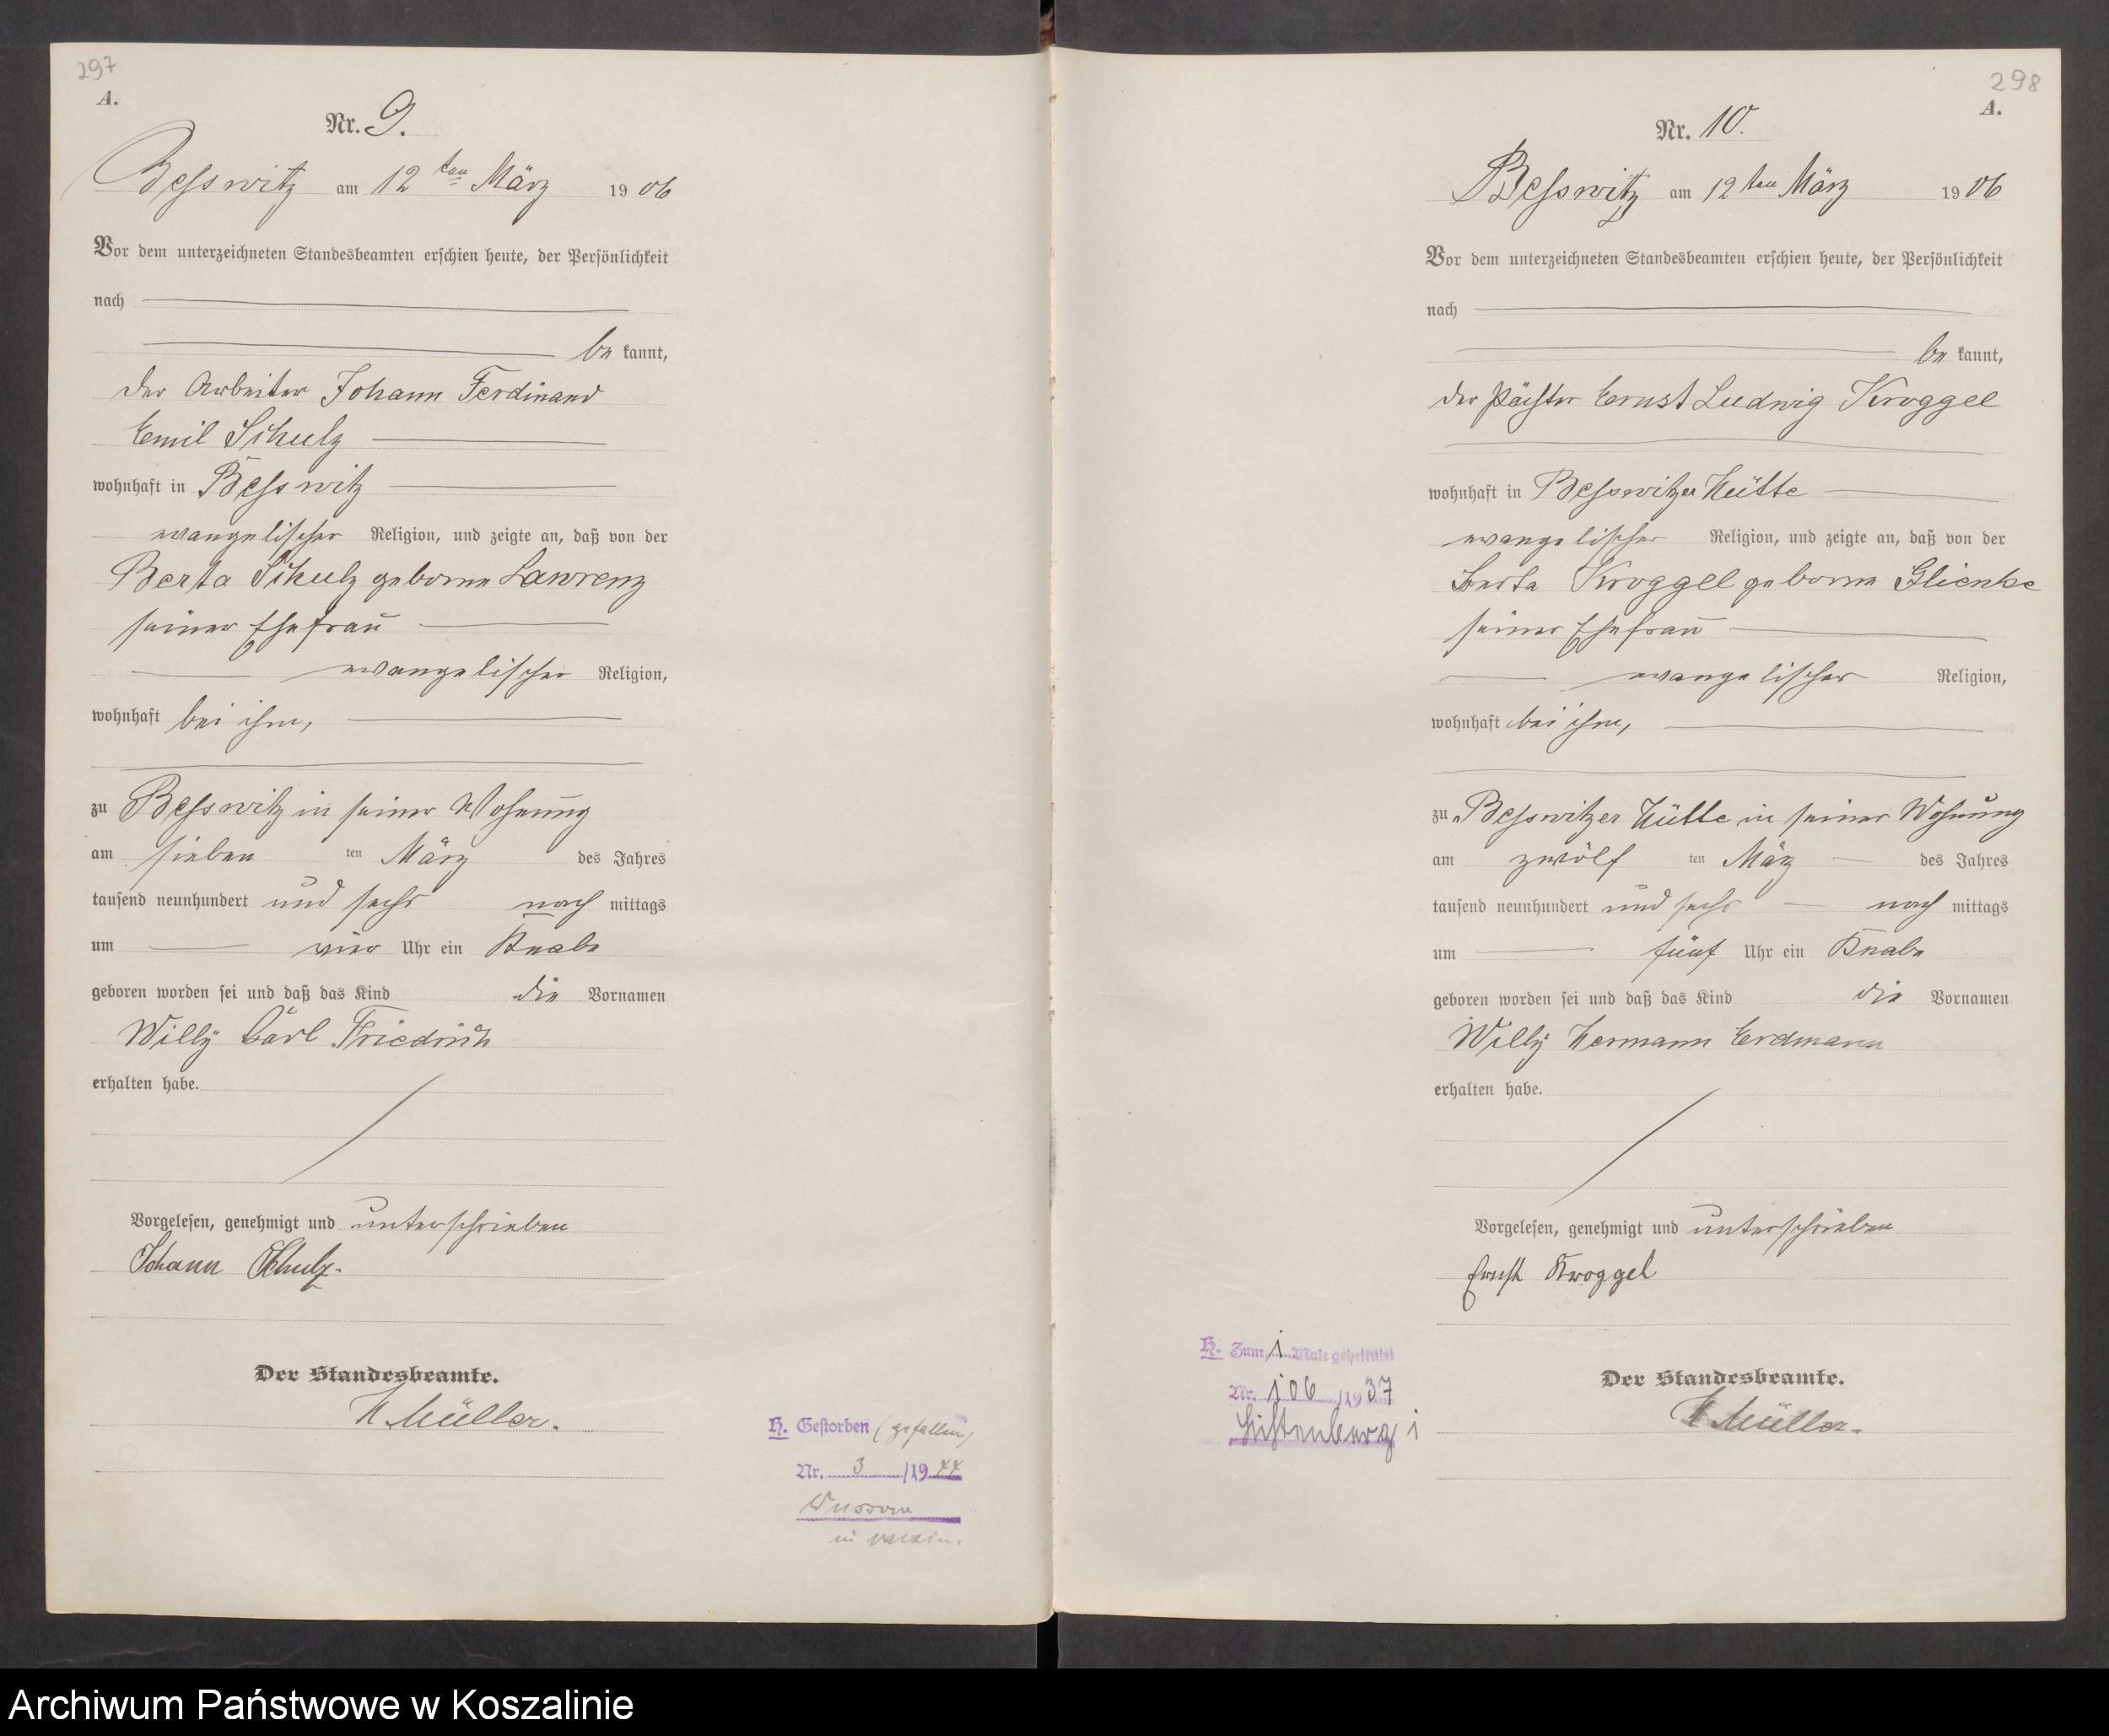 297
A.
Nr. 9.
Besswitz am 12ten März 1906
Vor dem unterzeichneten Standesbeamten erschien heute, der Persönlichkeit
nach
be kannt,
der Arbeiter Johann Ferdinand
Emil Schulz
wohnhaft in Besswitz
evangelischer Religion, und zeigte an, daß von der
Berta Schulz geborne Lawrenz
seiner Ehefrau
evangelischer Religion,
wohnhaft bei ihm,
zu Besswitz in seiner Wohnung
am sieben ten März des Jahres
tausend neunhundert und sechs nach mittags
um vier Uhr ein Knabe
geboren worden sei und daß das Kind die Vornamen
Willy Carl Friedrich
erhalten habe.
Vorgelesen, genehmigt und unterschrieben
Johann Schulz.
Der Standesbeamte.
H Müller.
H. Gestorben (gefallen)
Nr. 3 /1944
Wussow
298
A.
Nr. 10.
Besswitz am 12ten März 1906
Vor dem unterzeichneten Standesbeamten erschien heute, der Persönlichkeit
nach
be kannt,
der Pächter Ernst Ludwig Kroggel
wohnhaft in Besswitzer Hütte
evangelischer Religion, und zeigte an, daß von der
Berta Kroggel geborne Glienke
seiner Ehefrau
evangelischer Religion,
wohnhaft bei ihm,
zu Besswitzer Hütte in seiner Wohnung
am zwölf ten März des Jahres
tausend neunhundert und sechs nach mittags
um fünf Uhr ein Knabe
geboren worden sei und daß das Kind die Vornamen
Willy Hermann Erdmann
erhalten habe.
Vorgelesen, genehmigt und unterschrieben
Ernst Kroggel
Der Standesbeamte.
H Müller.
H. Zum 1 Male geheiratet
Nr. 106 /1937
Archiwum Państwowe w Koszalinie